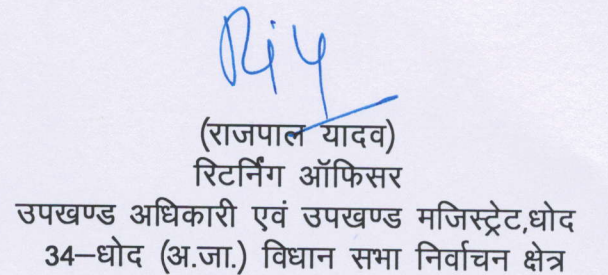 (राजपाल यादव)
रिटर्निंग ऑफिसर
उपखण्ड अधिकारी एवं उपखण्ड मजिस्ट्रेट,धोद
34–धोद (अ.जा.) विधान सभा निर्वाचन क्षेत्र